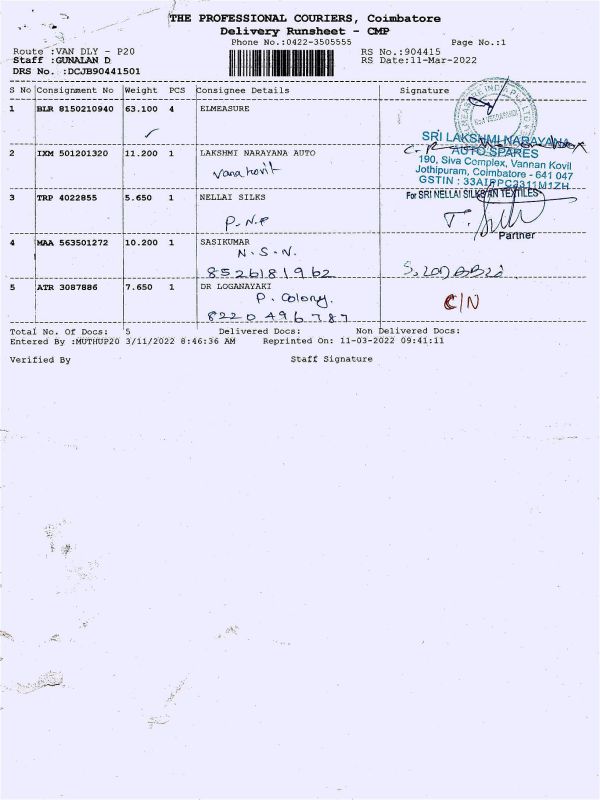 THE PROFESSIONAL COURIERS, Coimbatore
Delivery Runsheet - CMP
Phone No.:0422-3505555 Page No.:1
Route :VAN DLY - P20 RS No.:904415
Staff :GUNALAN D RS Date:11-Mar-2022
DRS No. :DCJB90441501
S No Consignment No Weight PCS Consignee Details Signature
1 BLR 8150210940 63.100 4 ELMEASURE
SRI LAKSHMI NARAYANA
AUTO SPARES
2 IXM 501201320 11.200 1 LAKSHMI NARAYANA AUTO
190, Siva Complex, Vannan Kovil
Jothipuram, Coimbatore - 641 047
GSTIN : 33AIRPC2311M1ZH
3 TRP 4022855 5.650 1 NELLAI SILKS
For SRI NELLAI SILKS AN TEXTILES
P.N.P
Partner
4 MAA 563501272 10.200 1 SASIKUMAR
N.S.N.
8526181962
5 ATR 3087886 7.650 1 DR LOGANAYAKI
P. Colony.
8220496787
C/N
Total No. Of Docs: 5 Delivered Docs: Non Delivered Docs:
Entered By :MUTHUP20 3/11/2022 8:46:36 AM Reprinted On: 11-03-2022 09:41:11
Verified By Staff Signature